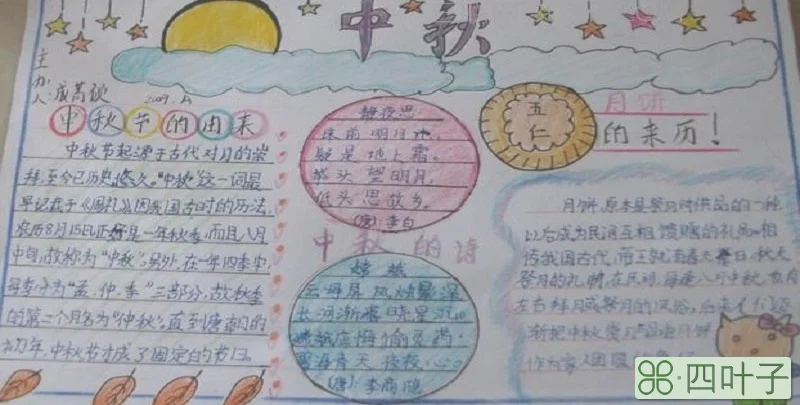 中秋
主办人:
中秋节的由来
中秋节起源于古代对月的崇
拜,至今已历史悠久。"中秋"这一词最
早记载于《周礼》因我国古时的历法,
农历8月15日正好是一年秋季,而且八月
中旬,故称为"中秋"。另外,在一年四季中
每季分为"孟、仲、季"三部分,故秋季
的第二个月名为"仲秋"。直到唐朝的
初年,中秋节才成了固定的节日。
静夜思
床前明月光,
疑是地上霜。
举头望明月,
低头思故乡。
(唐):李白
中秋的诗
嫦娥
云母屏风烛影深
长河渐落晓星沉
嫦娥应悔偷灵药
碧海青天夜夜心
(唐):李商隐
五仁
月饼
的来历!
月饼,原本是祭月时供品的一种
以后成为民间互相馈赠的礼品,相
传我国古代,帝王就有春天 日,秋天
祭月的礼制,在民间,每逢八月中秋,也有
左右拜月或祭月的风俗,后来人们逐
渐把中秋赏月与品尝月饼
作为家人团圆
四叶子